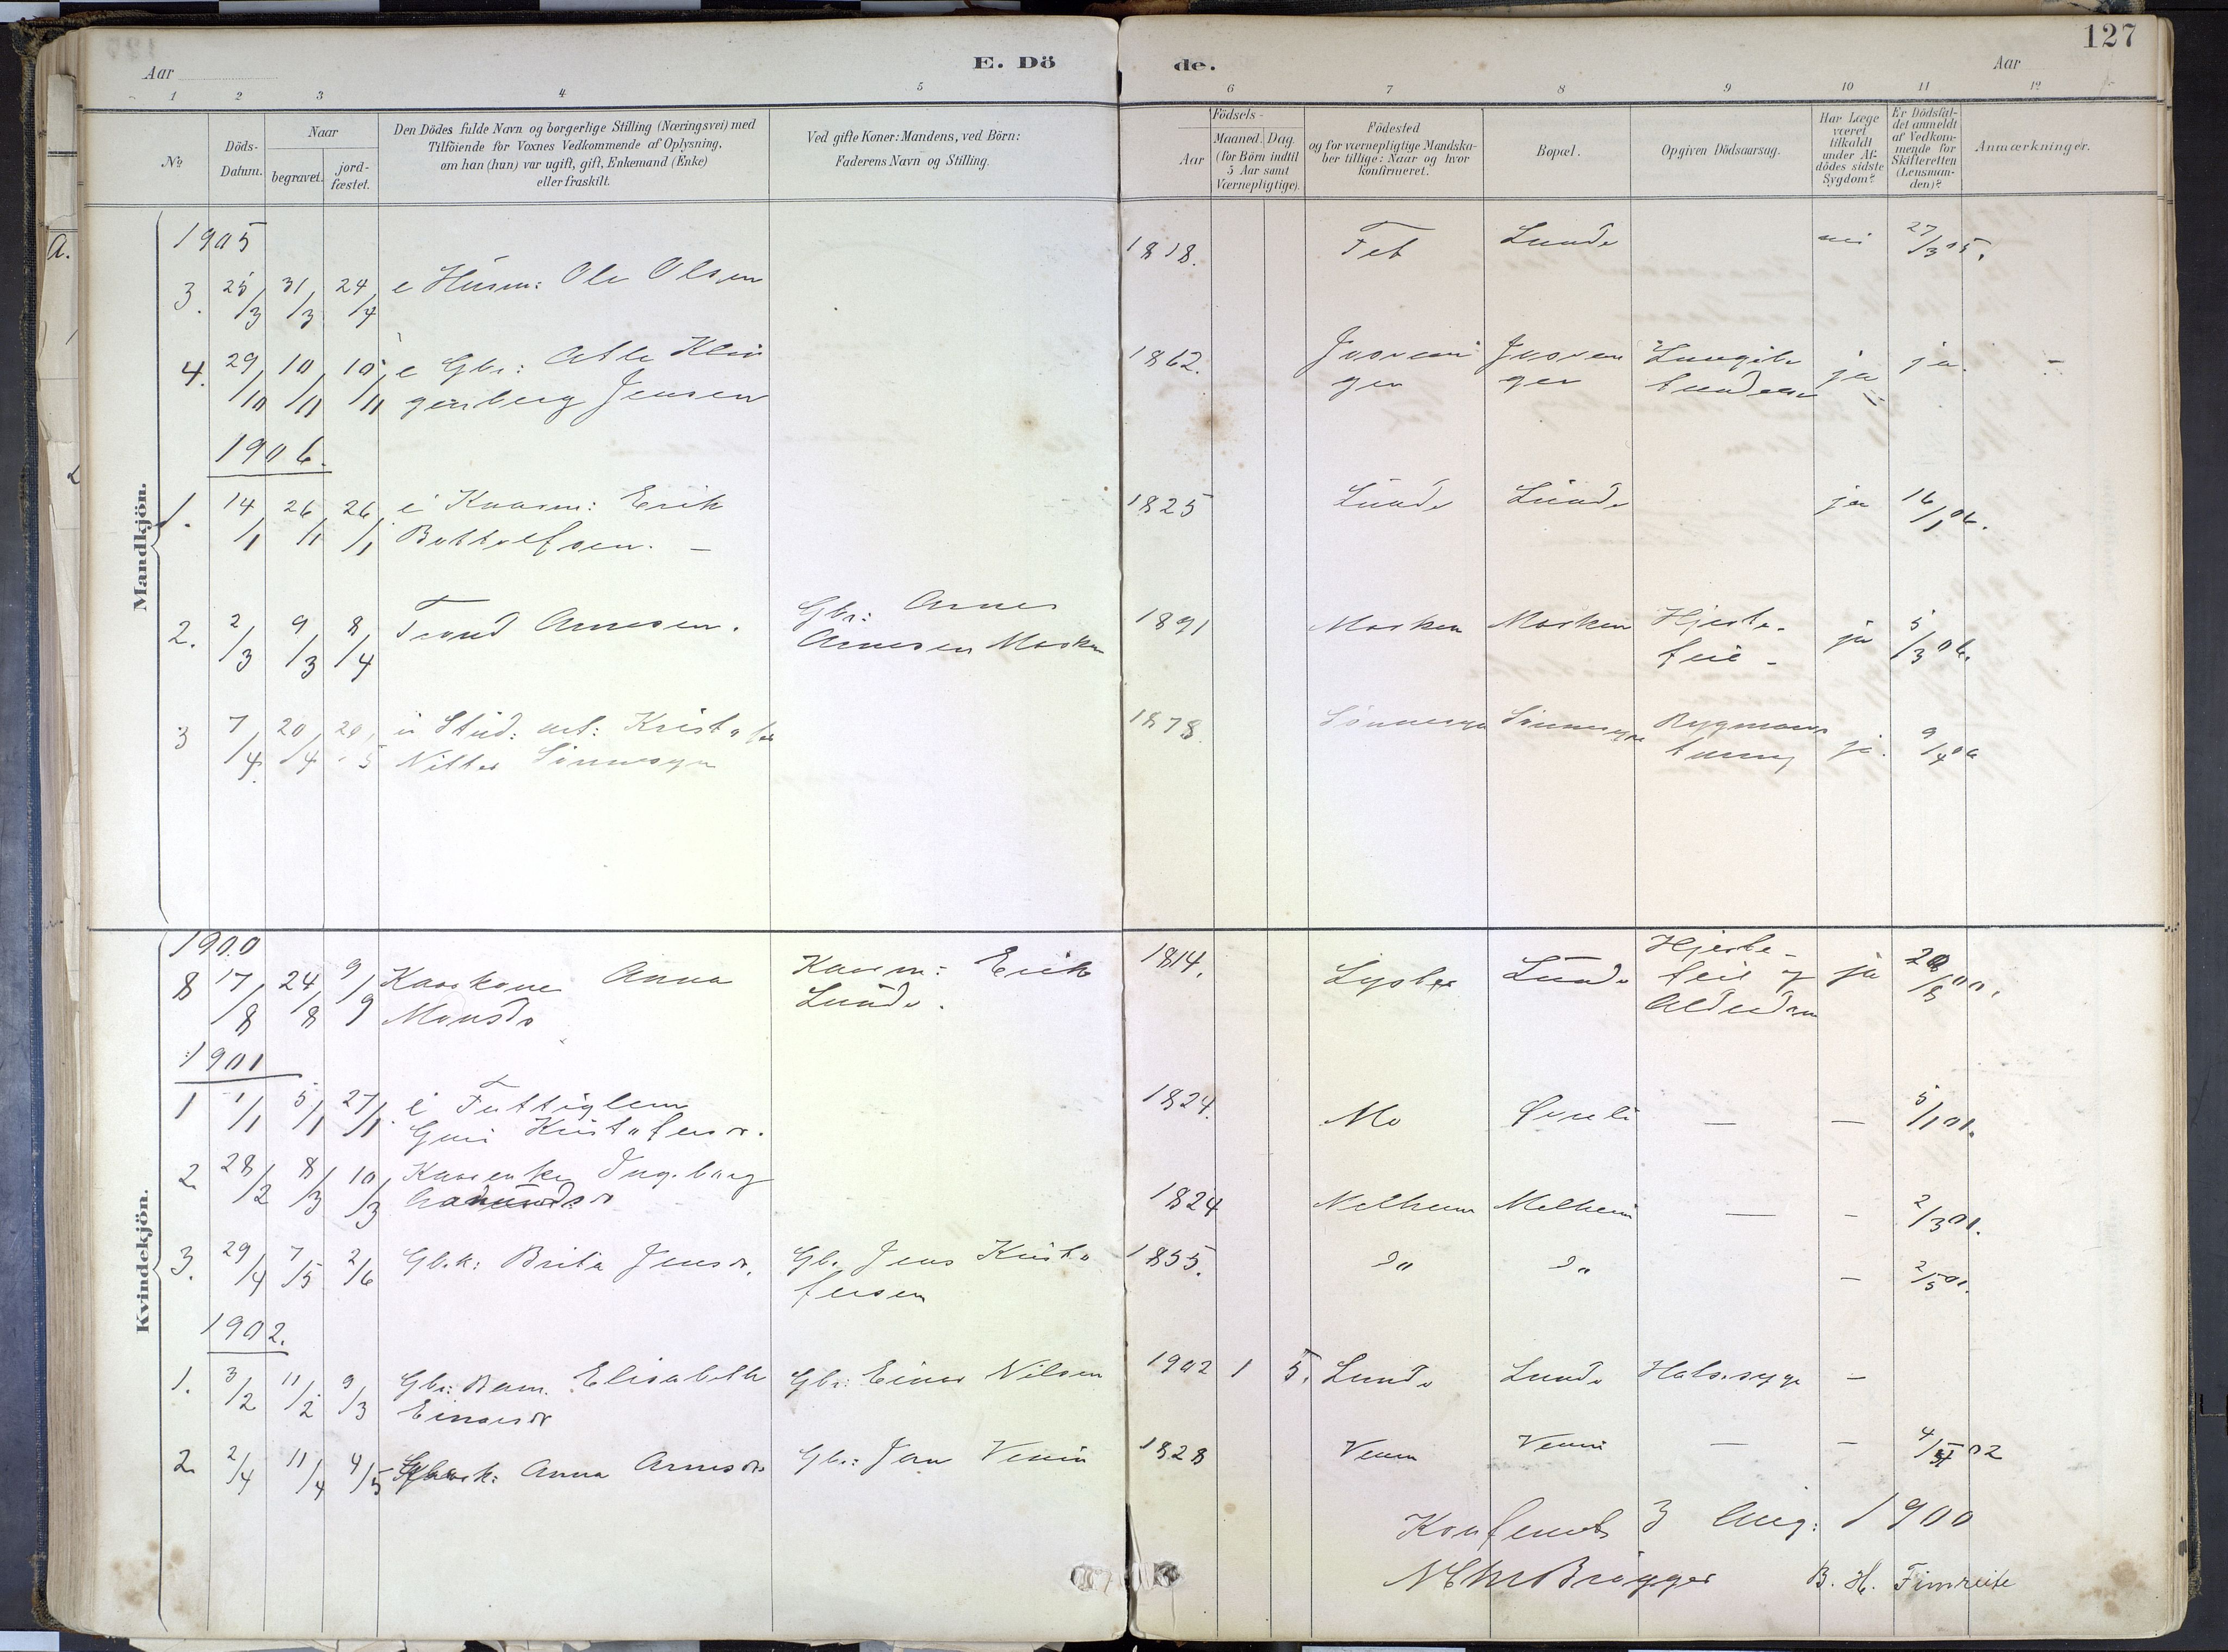 127
Aar
E. Dö
de.
Aar
1 2 3 4 5 6 7 8 9 10 11 12
No
Döds-
Datum.
Naar
begravet.
jord-
fæstet.
Den Dödes fulde Navn og borgerlige Stilling (Næringsvei) med
Tilföiende for Voxnes Vedkommende af Oplysning,
om han (hun) var ugift, gift, Enkemand (Enke)
eller fraskilt.
Ved gifte Koner: Mandens, ved Börn:
Faderens Navn og Stilling.
Födsels-
Aar
Maaned. Dag.
(for Börn indtil
5 Aar samt
Værnepligtige).
Födested
og for værnepligtige Mandska-
ber tillige: Naar og hvor
konfirmeret.
Bopæl.
Opgiven Dödsaarsag.
Har Læge
været
tilkaldt
under Af-
dödes sidste
Sygdom?
Er Dödsfal-
det anmeldt
af Vedkom-
mende for
Skifteretten
(Lensman-
den)?
Anmærkninger.
Mandkjön.
1905
3. 25/3 31/3 24/4 e Husm: Ole Olsen 1818. Feb Lunde nei 27/3 05.
4. 29/10 10/11 10/11 e Gbr: Atle Klin 1862. ja ja. -
genberg Jensen
1906.
1. 14/1 26/1 26/1 Kaarm: Erik 1825 Lunde Lunde ja 16/1 06.
Bottolfsen. -
2. 2/3 9/3 8/4 Trond Arnesen. Gbr: Arne 1891 Mosken Mosken Hjerte- ja 5/3 06.
Arnesen Mosken feil -
3 7/4 20/4 20/5 u Stud: art: Kristofer 1878 Rygmarvs ja. 9/4 06
Nitter
Kvindekjön.
1900
8 17/8 24/8 9/9 Kaarkone Anna Kaarm: Erik 1814. Lyster Lunde Hjerte- ja 20/8 00.
Monsdr Lunde. feil og
Alderdom
1901
1 1/1 5/1 27/1 e Fattiglem 1824. Mo - - 5/1 01.
Guri Kristofersdr.
2 28/2 8/3 10/3 Kaarenke Ingeborg 1824 Melheim Melheim - - 2/3 01.
3. 29/4 7/5 2/6 Gbk: Brita Jensdr. Gb. Jens Kristo 1855. do do - 2/5 01.
fersen
1902.
1. 3/2 11/2 9/3 Gbr: Barn. Elisabeth Gbr: Einar Nilsen 1902 1 5. Lunde Lunde Halssyge -
Einarsdr
2 2/4 11/4 4/5 Anna Arnesdr Gbr: Jan Venin 1828 - - 4/4 02
Konfereret 3 Aug: 1900
B. H. Fimreite